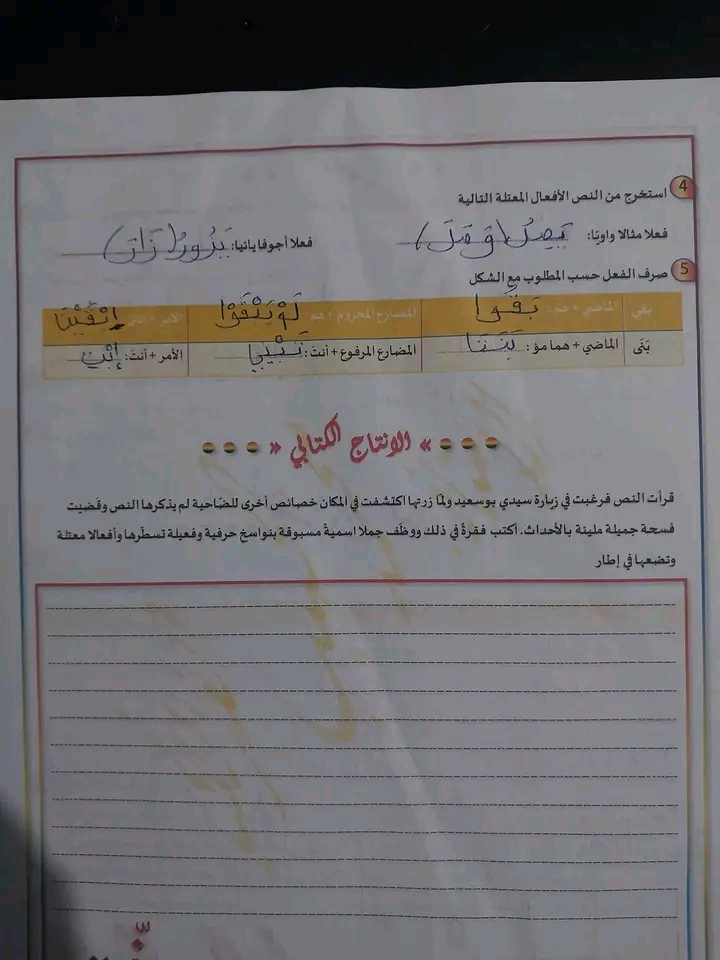 4 استخرج من النص الأفعال المعتلة التالية
فعلا مثالا واويّا: يَصِلُ (وَصَلَ) فعلا أجوفا يائيا: يَزُورُ (زَارَ)
5 صرف الفعل حسب المطلوب مع الشكل
بقي الماضي + هم: بَقُوا المضارع المجزوم + هم لَمْ يَبْقَوْا الأمر +
بَنَى الماضي + هما مؤ: بَنَتَا المضارع المرفوع + أنتَ: تَبْنِي الأمر + أنتَ: إبْنِ
» الانتاج الكتابي «
قرأت النص فرغبت في زيارة سيدي بوسعيد ولمّا زرتها اكتشفت في المكان خصائص أخرى للضاحية لم يذكرها النص وقضيت
فسحة جميلة مليئة بالأحداث. أكتب فقرةً في ذلك ووظّف جملا اسميةً مسبوقة بنواسخ حرفية وفعيلة تسطّرها وأفعالا معتلة
وتضعها في إطار